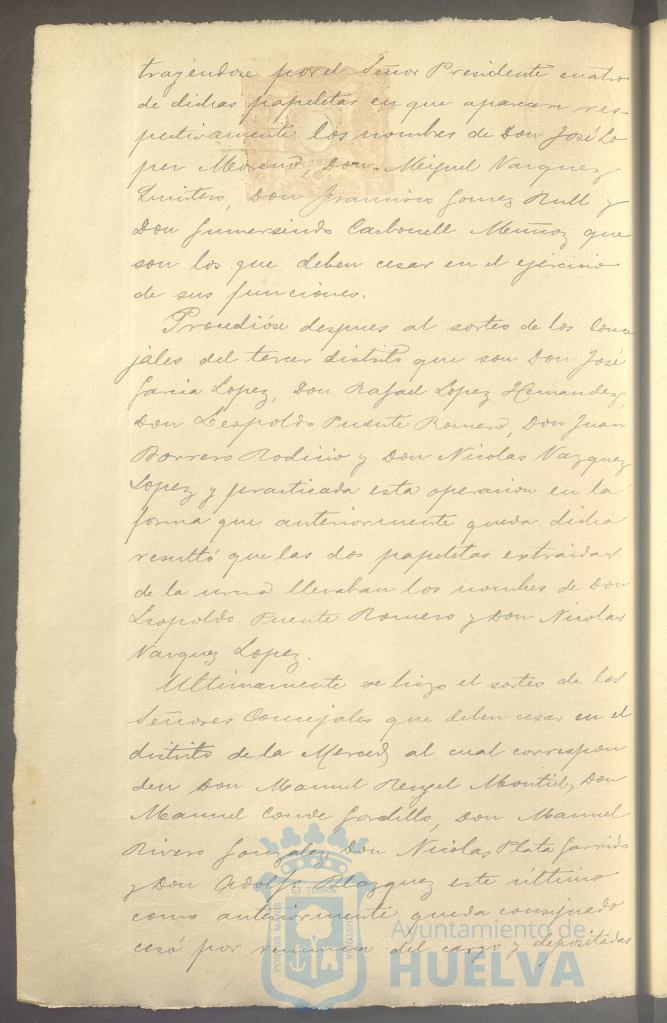 trayéndose por el Señor Presidente cuatro
de dichas papeletas en que aparecen res-
pectivamente los nombres de Don José Lo
pez Moreno, Don Miguel Vazquez
Quintero, Don Francisco Gomez Rull y
Don Gumersindo Carbonell Muñoz que
son los que deben cesar en el ejercicio
de sus funciones.
Procedióse despues al sorteo de los Conce
jales del tercer distrito que son Don José
Garcia Lopez, Don Rafael Lopez Hernandez,
Don Leopoldo Puente Romero, Don Juan
Borrero Rodicio y Don Nicolas Vazquez
Lopez y practicada esta operacion en la
forma que anteriormente queda dicha
resultó que las dos papeletas extraidas
de la urna llevaban los nombres de Don
Leopoldo Puente Romero y Don Nicolas
Vazquez Lopez.
Ultimamente se hizo el sorteo de los
Señores Concejales que deben cesar en el
distrito de la Merced al cual correspon
den Don Manuel Rengel Montiel, Don
Manuel Conde Gordillo, Don Manuel
Rivero Gonzalez, Don Nicolas Plata Garrido
y Don Adolfo Blazquez este ultimo
como anteriormente queda consignado
cesó por renuncia del cargo y depositadas
PORTUS MARIS ET TERRAE CUSTODIA
Ayuntamiento de
HUELVA